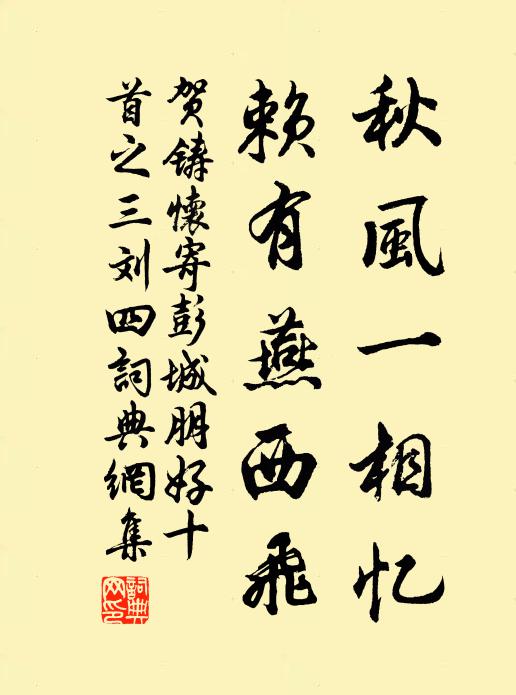 秋風一相忆
赖有燕西飛
贺铸懷寄彭城朋好十
首之三刘四詞典網集
詞典
网印